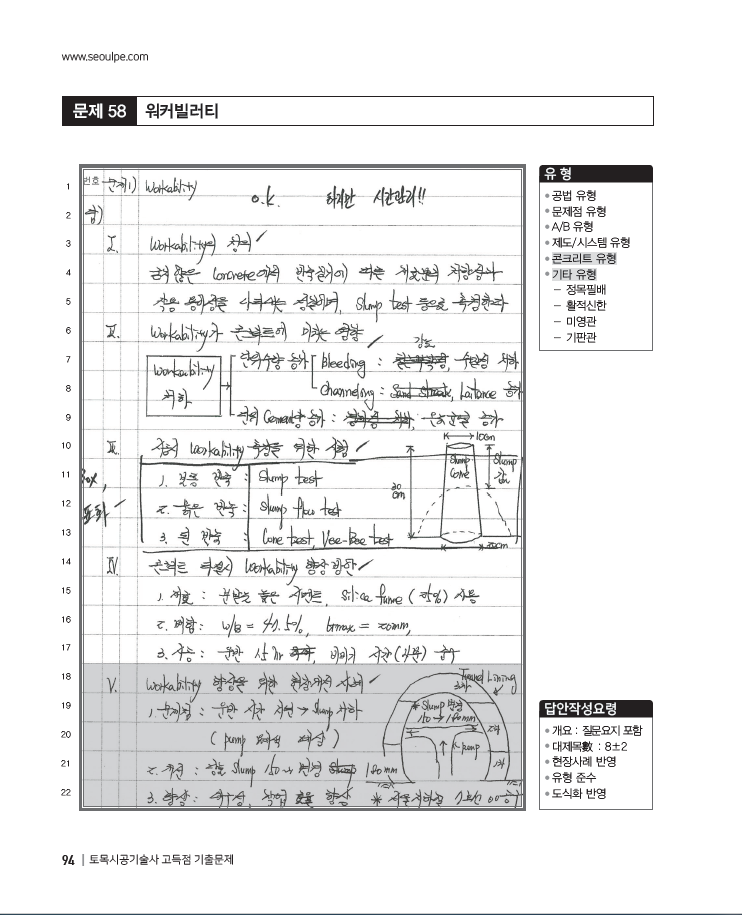 www.seoulpe.com
문제 58 워커빌러티
번호
문제1) Workability
o.k. 하지만 시간관리!!
답)
I. Workability의 정의
굳지 않은 Concrete에서 반죽질기에 따른 재료분리 저항성과
작업 용이성을 나타내는 성질이며, Slump test 등으로 측정한다
II. Workability가 콘크리트에 미치는 영향
Workability 저하
단위수량 증가
Bleeding : 강도, 수밀성 저하
Channeling : Sand streak, Laitance 증가
단위 Cement량 증가 : 온도균열 증가
III. 적정 Workability 측정을 위한 시험
1. 보통 반죽 : Slump test
2. 묽은 반죽 : Slump flow test
3. 된 반죽 : Cone test, Vee-Bee test
Box, 도화
10cm
Slump Cone
Slump 값
30cm
20cm
IV. 콘크리트 타설시 Workability 향상 방안
1. 재료 : 분말도 높은 시멘트, Silica fume 사용
2. 배합 : w/B = 47.5%, Gmax = 20mm,
3. 시공 : 운반 시간, 비비기 시간 준수
V. Workability 향상을 위한 현장개선 사례
1. 문제점 : 운반 시간 지연 → Slump 저하
(pump 폐색 예상)
2. 개선 : Slump 150 → 변경 180mm
3. 향상 : 작업 효율 향상
Tunnel Lining
* Slump 변경
150 → 180mm
pump
유 형
• 공법 유형
• 문제점 유형
• A/B 유형
• 제도/시스템 유형
• 콘크리트 유형
• 기타 유형
– 정목필배
– 활적신한
– 미영관
– 기판관
답안작성요령
• 개요 : 질문요지 포함
• 대제목數 : 8±2
• 현장사례 반영
• 유형 준수
• 도식화 반영
1
2
3
4
5
6
7
8
9
10
11
12
13
14
15
16
17
18
19
20
21
22
94 | 토목시공기술사 고득점 기출문제